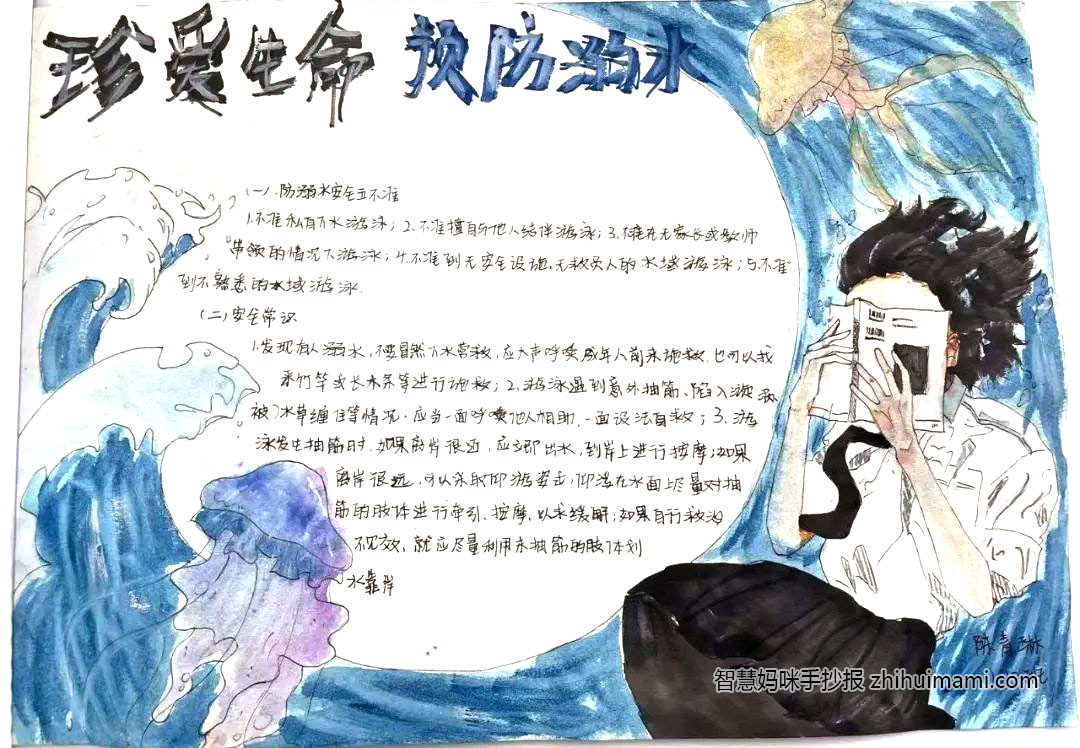 珍爱生命 预防溺水
(一).防溺水安全五不准
1.不准私自下水游泳;2.不准擅自与他人结伴游泳;3.不准在无家长或教师
带领的情况下游泳;4.不准到无安全设施、无救员人的水域游泳;5.不准
到不熟悉的水域游泳.
(二)安全常识
1.发现有人溺水,不要冒然下水营救,应大声呼唤成年人前来施救,也可以找
来竹竿或长木条等进行施救;2.游泳遇到意外抽筋、陷入漩涡
被水草缠住等情况,应当一面呼唤他人相助,一面设法自救;3.游
泳发生抽筋时,如果离岸很近,应立即出水,到岸上进行按摩;如果
离岸很远,可以采取仰游姿势,仰浮在水面上尽量对抽
筋的肢体进行牵引、按摩,以求缓解;如果自行救治
不见效,就应尽量利用未抽筋的肢体划
水靠岸
陈青琳
智慧妈咪手抄报 zhihuimami.com